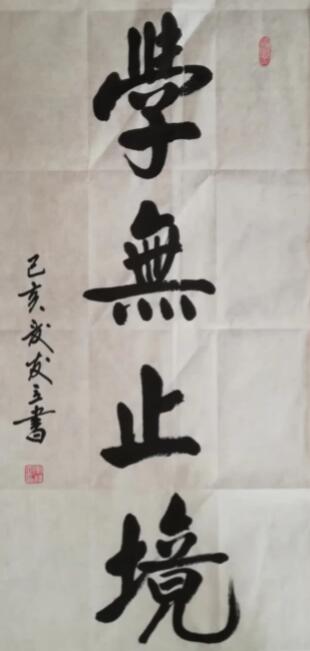 學無止境
己亥 友立書